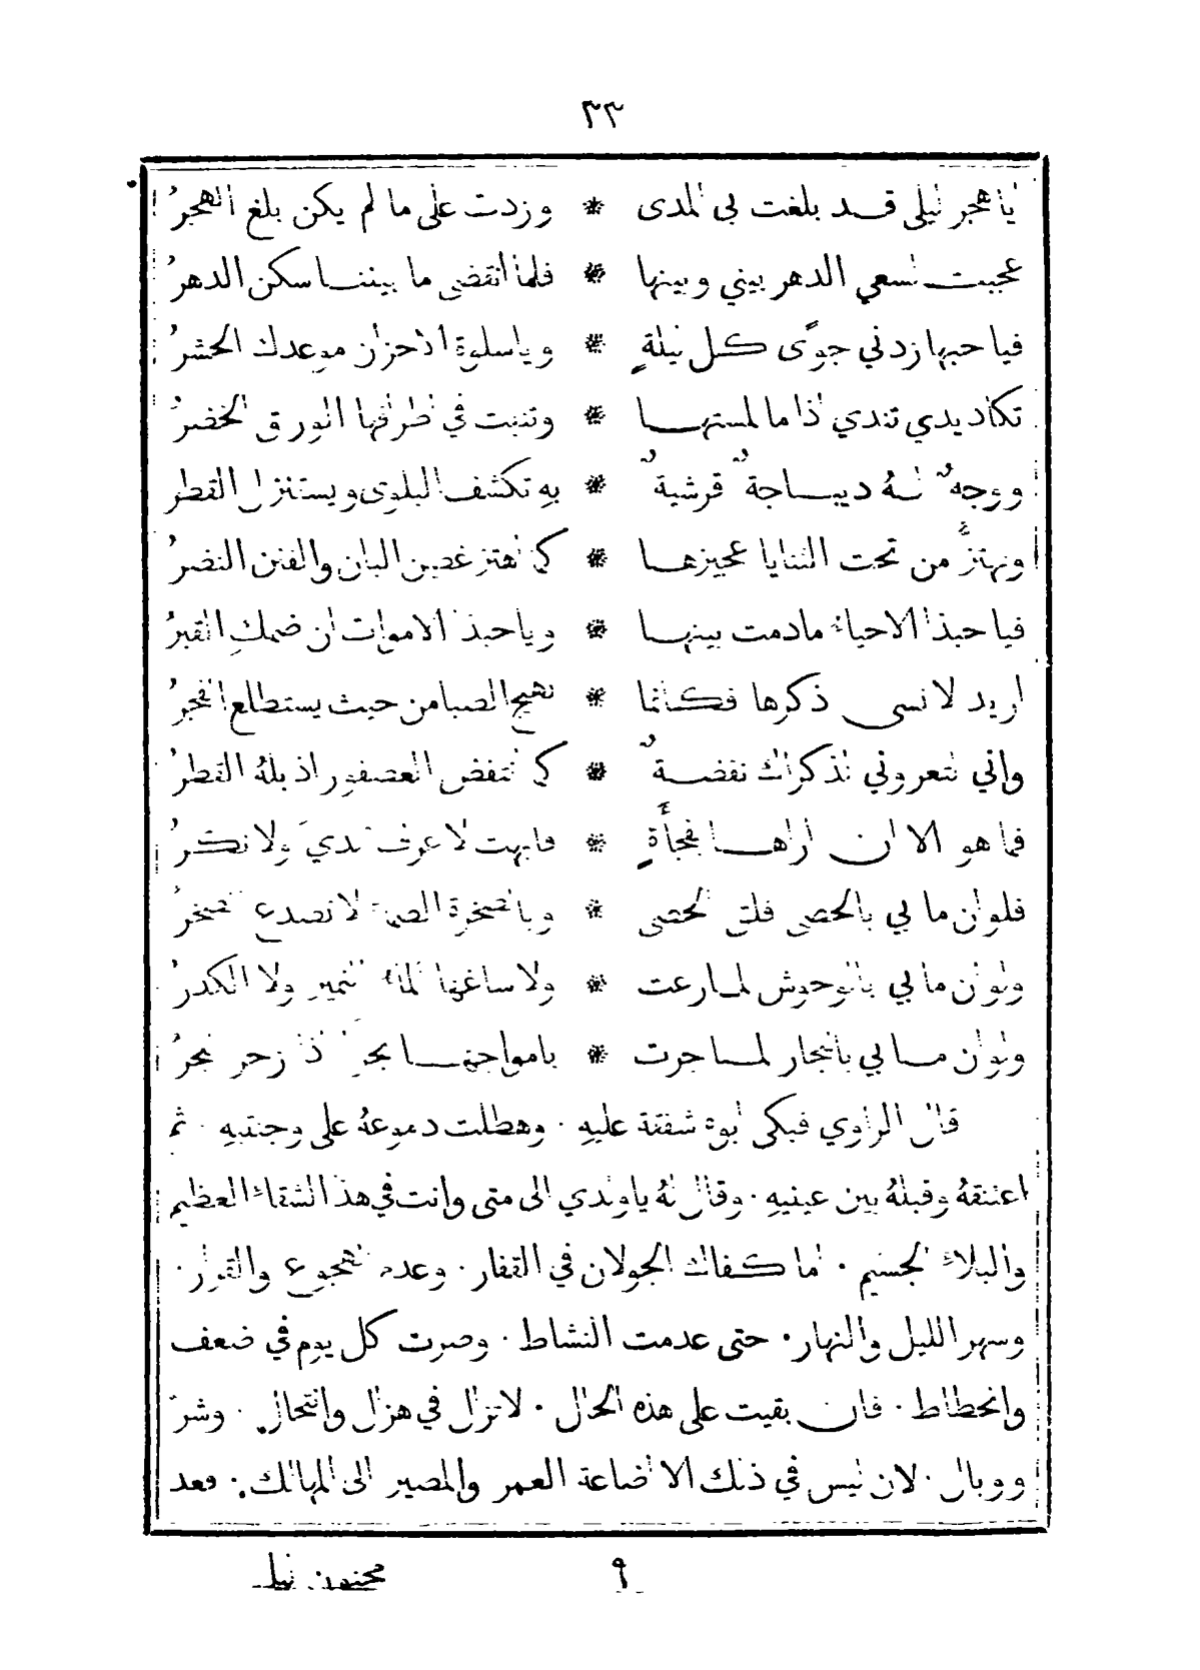 ٣٣
ايا هجر ليلى قد بلغت بي المدى * وزدت على ما لم يكن بلغ الهجرُ
عجبت لسعي الدهر بيني وبينها * فلما انقضى ما بيننا سكن الدهرُ
فيا حبها زدني جوًى كل ليلةٍ * ويا سلوة الاحزان موعدك الحشرُ
تكاد يدي تندي اذا ما لمستها * وتنبت في اطرافها الورق الخضرُ
ووجهٌ لهُ ديباجةٌ قرشيةٌ * بهِ تكشف البلوى ويستنزل القطر
ويهتزُّ من تحت الثنايا عجيزها * كما اهتز غصن البان والفنن النضرُ
فيا حبذا الاحياء مادمت بينها * ويا حبذا الاموات ان ضمكِ القبرُ
اريد لانسى ذكرها فكانما * تهيج الصبا من حيث يستطلع الفجرُ
واني لتعروني لذكراك نفضةٌ * كما انتفض العصفور اذ بلهُ القطرُ
فما هو الا ان اراها فجأةٍ * فابهت لا عرف لدي ولا نكرُ
فلو ان ما بي بالحصى فلق الحصى * وبالصخرة الصماء لانصدع الصخرُ
ولو ان ما بي بالوحوش لما رعت * ولا ساغها الماء النمير ولا الكدرُ
ولو ان ما بي بالبحار لما جرت * بامواجها بحرٌ اذا زخر البحرُ
قال الراوي فبكى ابوه شفقة عليهِ ٠ وهطلت دموعهُ على وجنتيهِ ٠ ثم
اعتنقهُ وقبلهُ بين عينيهِ ٠ وقال لهُ يا ولدي الى متى وانت في هذا الشقاء العظيم
والبلاء الجسيم ٠ اما كفاك الجولان في القفار ٠ وعدم الهجوع والقرار ٠
وسهر الليل والنهار ٠ حتى عدمت النشاط ٠ وصرت كل يوم في ضعف
وانحطاط ٠ فان بقيت على هذه الحال ٠ لا تزال في هزال وانتحال ٠ وشر
ووبال ٠ لان ليس في ذلك الا اضاعة العمر والمصير الى المهالك ٠ فعد
٩ مجنون ليلى